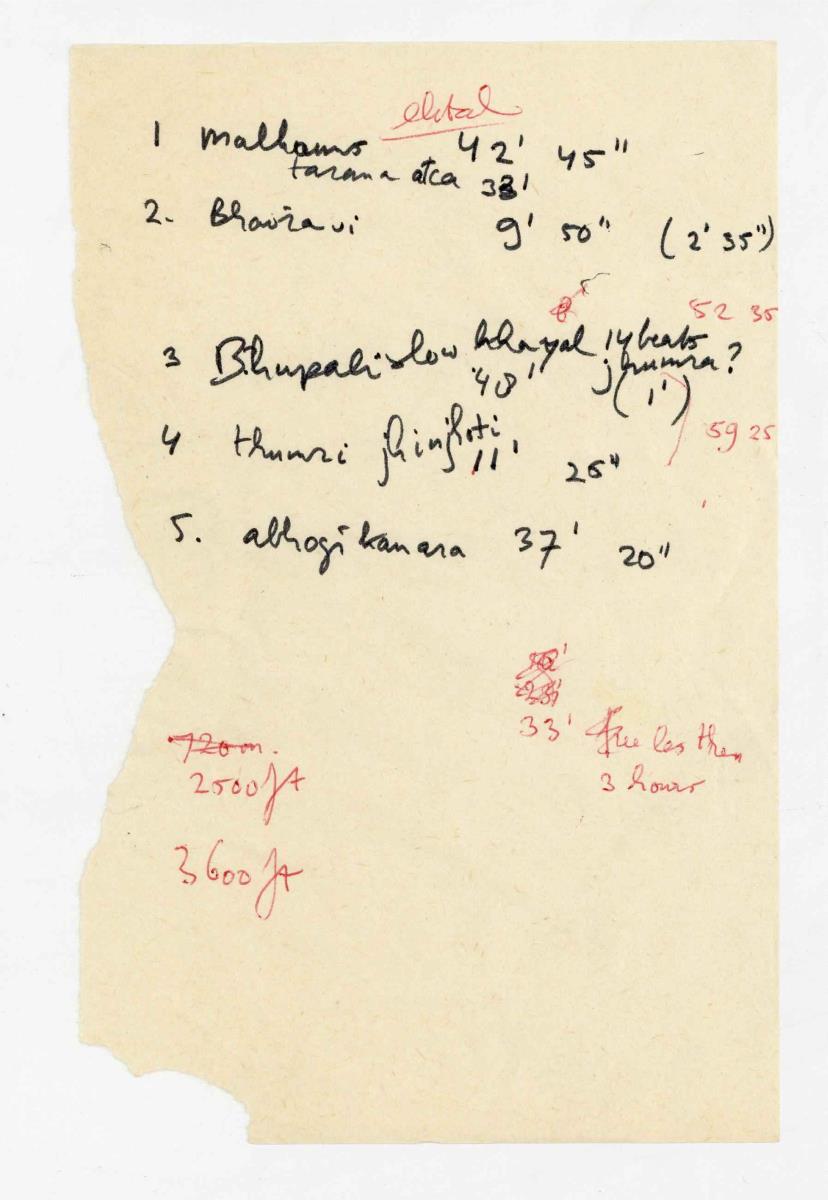 ektal
1 Malkauns 42' 45"
tarana at ca 33'
2. Bhairavi 9' 50" (2' 35")
52 35
3 Bhupali slow khayal 14 beats
48' jhumra?
(1')
4 thumri jhinjhoti 59 25
11' 25"
5. abhogi kanara 37' 20"
33' less then
720 m.
2500 ft 3 hours
3600 ft